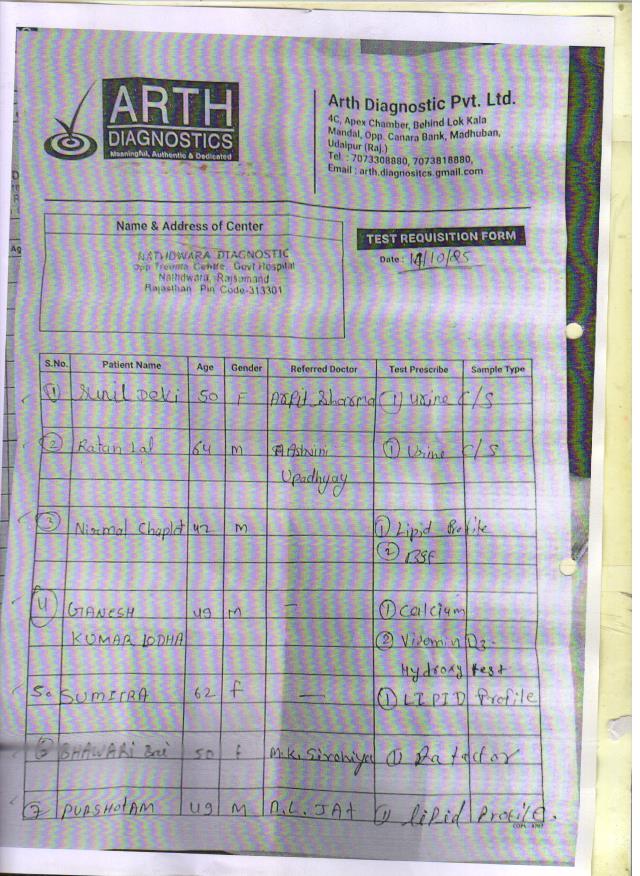 ARTH
DIAGNOSTICS
Meaningful, Authentic & Dedicated
Arth Diagnostic Pvt. Ltd.
4C, Apex Chamber, Behind Lok Kala
Mandal, Opp. Canara Bank, Madhuban,
Udaipur (Raj.)
Tel. : 7073308880, 7073818880,
Email : arth.diagnositcs.gmail.com
Name & Address of Center
NATHDWARA DIAGNOSTIC
Opp Trauma Centre, Govt Hospital
Nathdwara, Rajsamand
Rajasthan Pin Code-313301
TEST REQUISITION FORM
Date : 14/10/25
S.No. Patient Name Age Gender Referred Doctor Test Prescribe Sample Type
① Sunil Devi 50 F Arpit Sharma ① Urine C/S
② Ratan Lal 64 M Ashwini ① Urine C/S
Upadhyay
③ Nirmal Chaplot 42 M ① Lipid Profile
②
4 GANESH 49 M — ① Calcium
KUMAR LODHA ② Vitamin D3-
Hydroxy test
5. SUMITRA 62 F — ① LIPID Profile
6 BHAWARI Bai 50 F M.K. Sirohiya ① Ra factor
7 PURSHOTAM 49 M JAT ① Lipid Profile.